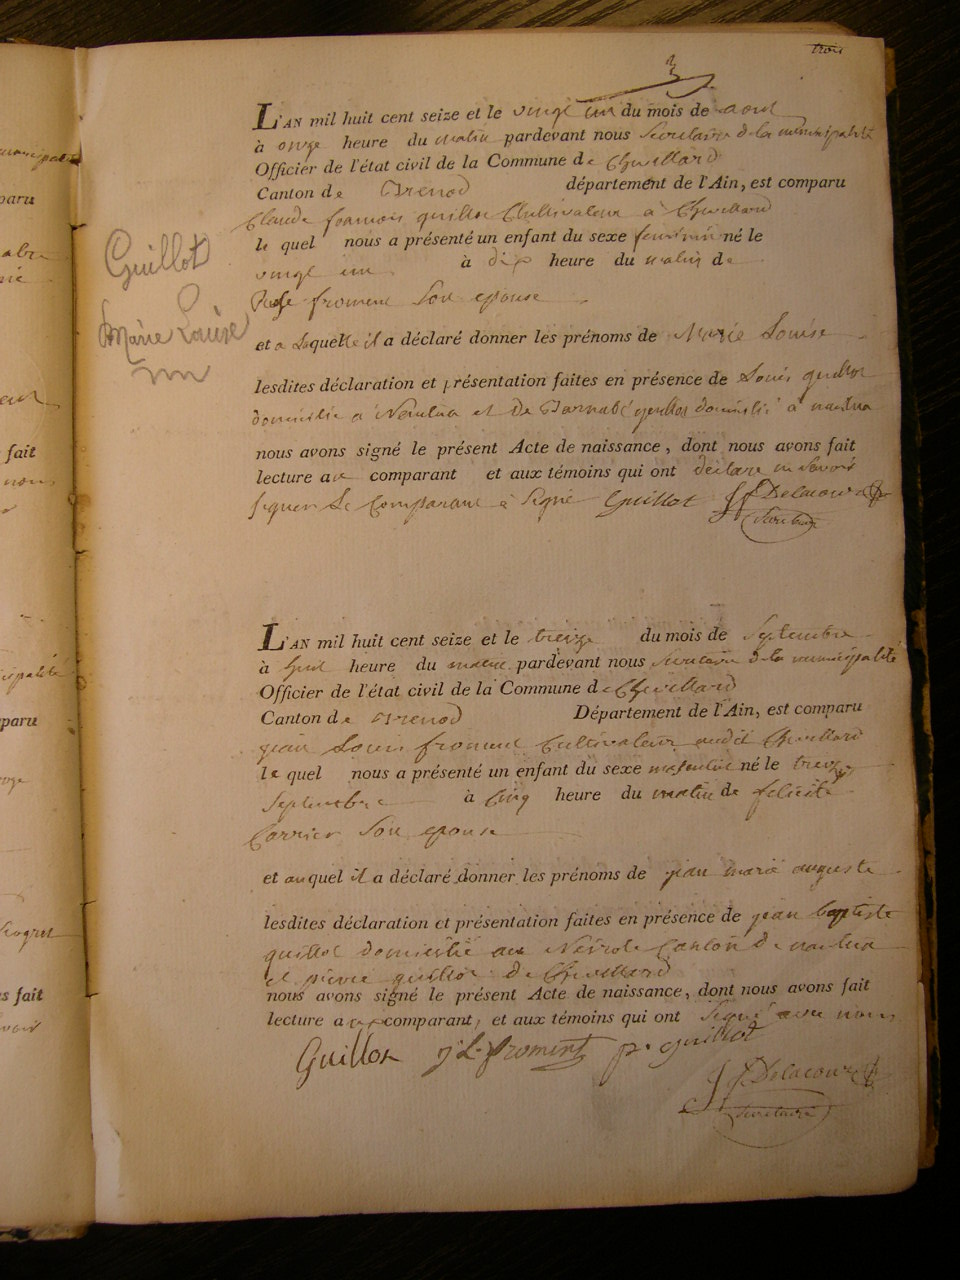 trois
3
L'AN mil huit cent seize et le vingt un du mois de aout
à onze heure du matin pardevant nous Secretaire de la municipalité
Officier de l'état civil de la Commune de Chevillard
Canton de Brenod département de l'Ain, est comparu
Claude francois guillot Cultivateur à Chevillard
le quel nous a présenté un enfant du sexe feminin né le
vingt un à dix heure du matin de
froment Son epouse
et a laquelle il a déclaré donner les prénoms de Marie Louise
lesdites déclaration et présentation faites en présence de Louis guillot
domicilié a Nantua et de Barnabé guillot domicilié à nantua
nous avons signé le présent Acte de naissance, dont nous avons fait
lecture au comparant et aux témoins qui ont déclaré ne Savoir
Signer Le Comparant à Signé Guillot Delacour
Secretaire
Guillot
Marie Louise
L'AN mil huit cent seize et le treize du mois de Septembre
à huit heure du matin pardevant nous Secretaire de la municipalité
Officier de l'état civil de la Commune de Chevillard
Canton de Brenod Département de l'Ain, est comparu
jean Louis froment Cultivateur audit Chevillard
le quel nous a présenté un enfant du sexe masculin né le treize
Septembre à Cinq heure du matin de felicité
Carrier Son epouse
et auquel il a déclaré donner les prénoms de jean marie auguste
lesdites déclaration et présentation faites en présence de jean baptiste
guillot domicilié au Canton de nantua
et pierre guillot de Chevillard
nous avons signé le présent Acte de naissance, dont nous avons fait
lecture a comparant, et aux témoins qui ont Signé avec nous
Guillot J. L. froment p. guillot
Delacour
Secretaire